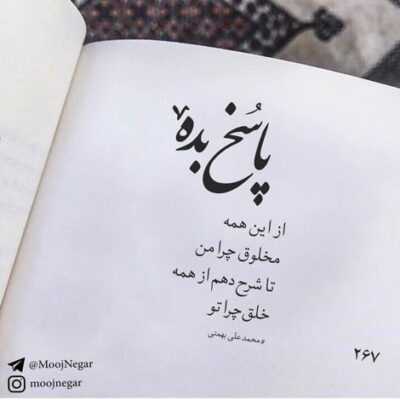 پاسخ بده
از این همه
مخلوق چرا من
تا شرح دهم از همه
خلق چرا تو
#محمدعلی بهمنی
۲۶۷
@MoojNegar
moojnegar